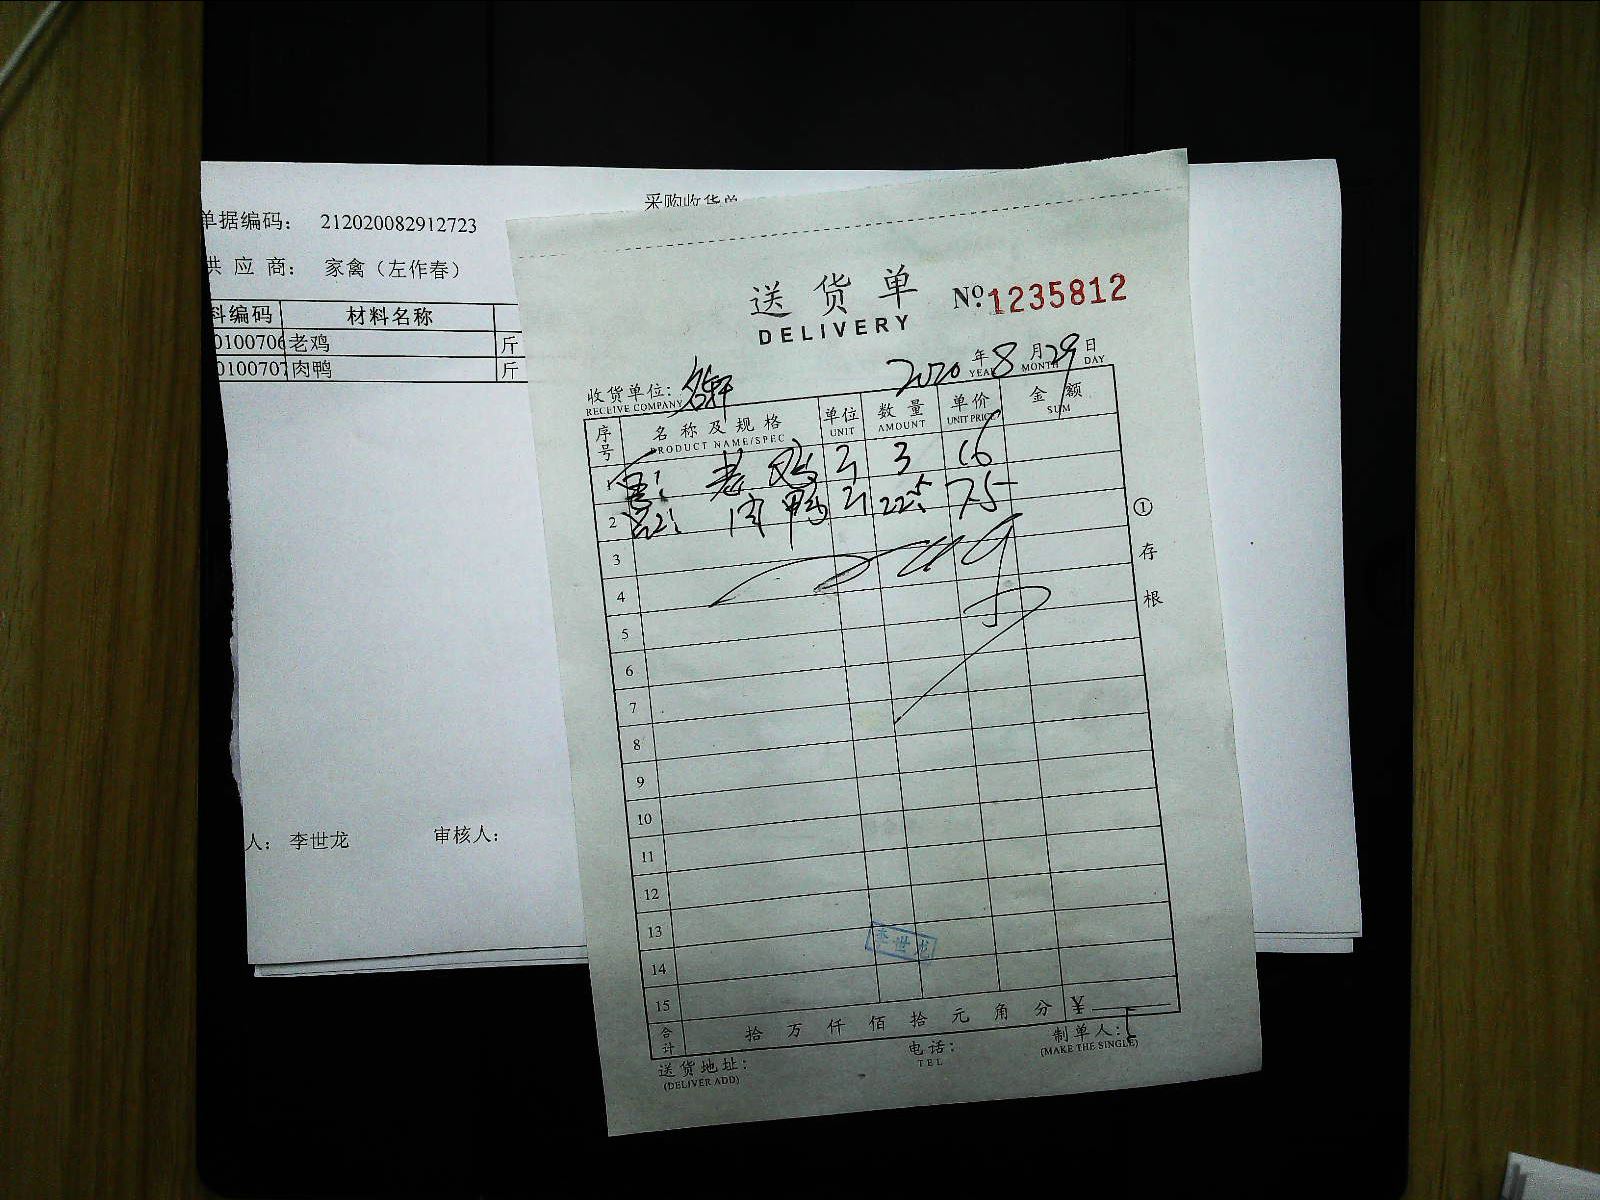 采购收货单
单据编码： 212020082912723
供 应 商： 家禽（左作春）
料编码 材料名称
0100706 老鸡 斤
0100707 肉鸭 斤
人： 李世龙 审核人：
送货单 № 1235812
DELIVERY
2020 年 8 月 29 日
YEAR MONTH DAY
收货单位：
RECEIVE COMPANY
序号 名称及规格 单位 数量 单价 金额
PRODUCT NAME/SPEC UNIT AMOUNT UNIT PRICE SUM
1 老鸡 3 16
2 肉鸭 22.5 7.5
3
4
5
6
7
8
9
10
11
12
13
李世龙
14
15
合计 拾 万 仟 佰 拾 元 角 分 ¥
送货地址： 电话： 制单人：
(DELIVER ADD) TEL (MAKE THE SINGLE)
① 存根